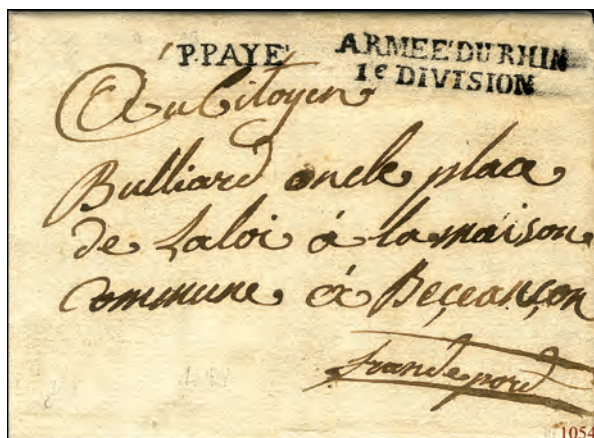 P.PAYÉ ARMÉE DU RHIN
1e DIVISION
Au Citoyen
Bulliard oncle place
de Laloi à la maison
commune à Beçeançon
francdeport
1054